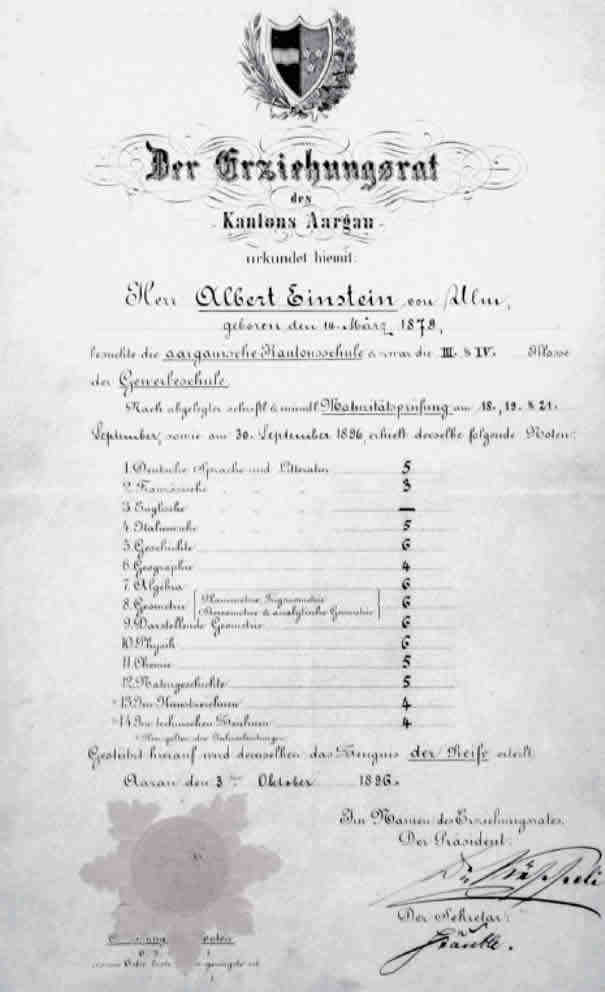 Der Erziehungsrat
des
Kantons Aargau
urkundet hiemit:
Herr Albert Einstein von Ulm,
geboren den 14. März 1879,
besuchte die aargauische Kantonsschule & zwar die III. & IV. Klasse
der Gewerbeschule.
Nach abgelegter schriftl. & mündl. Maturitätsprüfung am 18., 19. & 21.
September, sowie am 30. September 1896, erhielt derselbe folgende Noten:
1. Deutsche Sprache und Litteratur 5
2. Französische " " " 3
3. Englische " " " —
4. Italienische " " " 5
5. Geschichte 6
6. Geographie 4
7. Algebra 6
8. Geometrie (Planimetrie, Trigonometrie 6
Stereometrie & analytische Geometrie)
9. Darstellende Geometrie 6
10. Physik 6
11. Chemie 5
12. Naturgeschichte 5
* 13. Im Kunstzeichnen 4
* 14. Im technischen Zeichnen 4
* Hier gelten die Jahresleistungen.
Gestützt hierauf wird demselben das Zeugnis der Reife erteilt.
Aarau den 3ten Oktober 1896.
Im Namen des Erziehungsrates,
Der Präsident:
Der Sekretär: